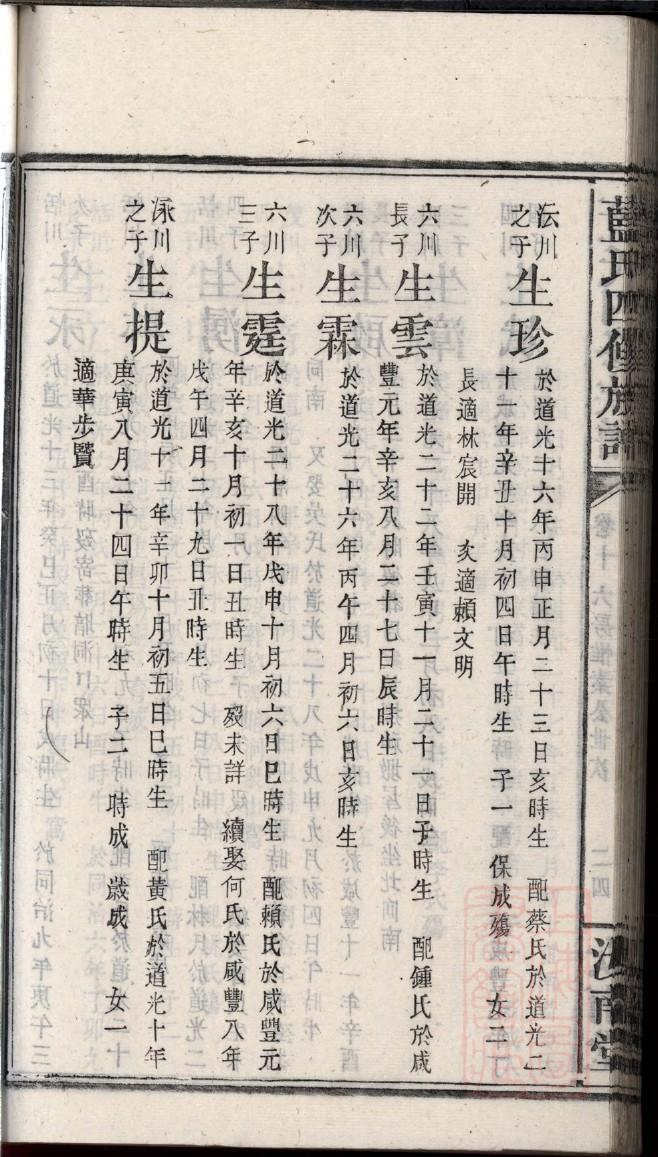 藍氏四修族譜
卷十六
二四
汝南堂
沄川之子 生珍 於道光十六年丙申正月二十三日亥時生 配蔡氏於道光二
十一年辛丑十月初四日午時生 子一 保成殤 女二
長適林宸開 次適賴文明
六川長子 生雲 於道光二十二年壬寅十一月二十一日子時生 配鍾氏於咸
豐元年辛亥八月二十七日辰時生
六川次子 生霖 於道光二十六年丙午四月初六日亥時生
六川三子 生霆 於道光二十八年戊申十月初六日巳時生 配賴氏於咸豐元
年辛亥十月初一日丑時生 歿未詳 續娶何氏於咸豐八年
戊午四月二十九日丑時生
泳川之子 生提 於道光十一年辛卯十月初五日巳時生 配黃氏於道光十年
庚寅八月二十四日午時生 子二 時成 歲成 女一
適華步贊